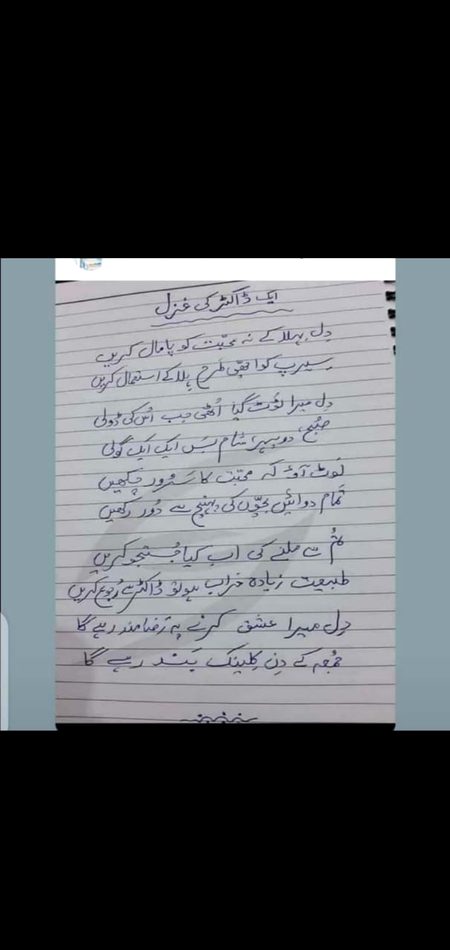 ایک ڈاکٹر کی غزل
دِل بہلا کے نہ محبّت کو پامال کریں
سیرپ کو اچھی طرح ہلا کے استعمال کریں
دِل میرا ٹوٹ گیا اُٹھی جب اُس کی ڈولی
صُبح، دوپہر، شام بَس ایک ایک گولی
لَوٹ آؤ کہ محبّت کا سَرُور چکھیں
تمام دوائیں بچّوں کی پہنچ سے دُور رکھیں
تُم سے ملنے کی اب کیا جُستجو کریں
طبیعت زیادہ خراب ہو تو ڈاکٹر سے رُجوع کریں
دِل میرا عشق کرنے پہ رَضامند رہے گا
جُمعہ کے دِن کلینک بَند رہے گا